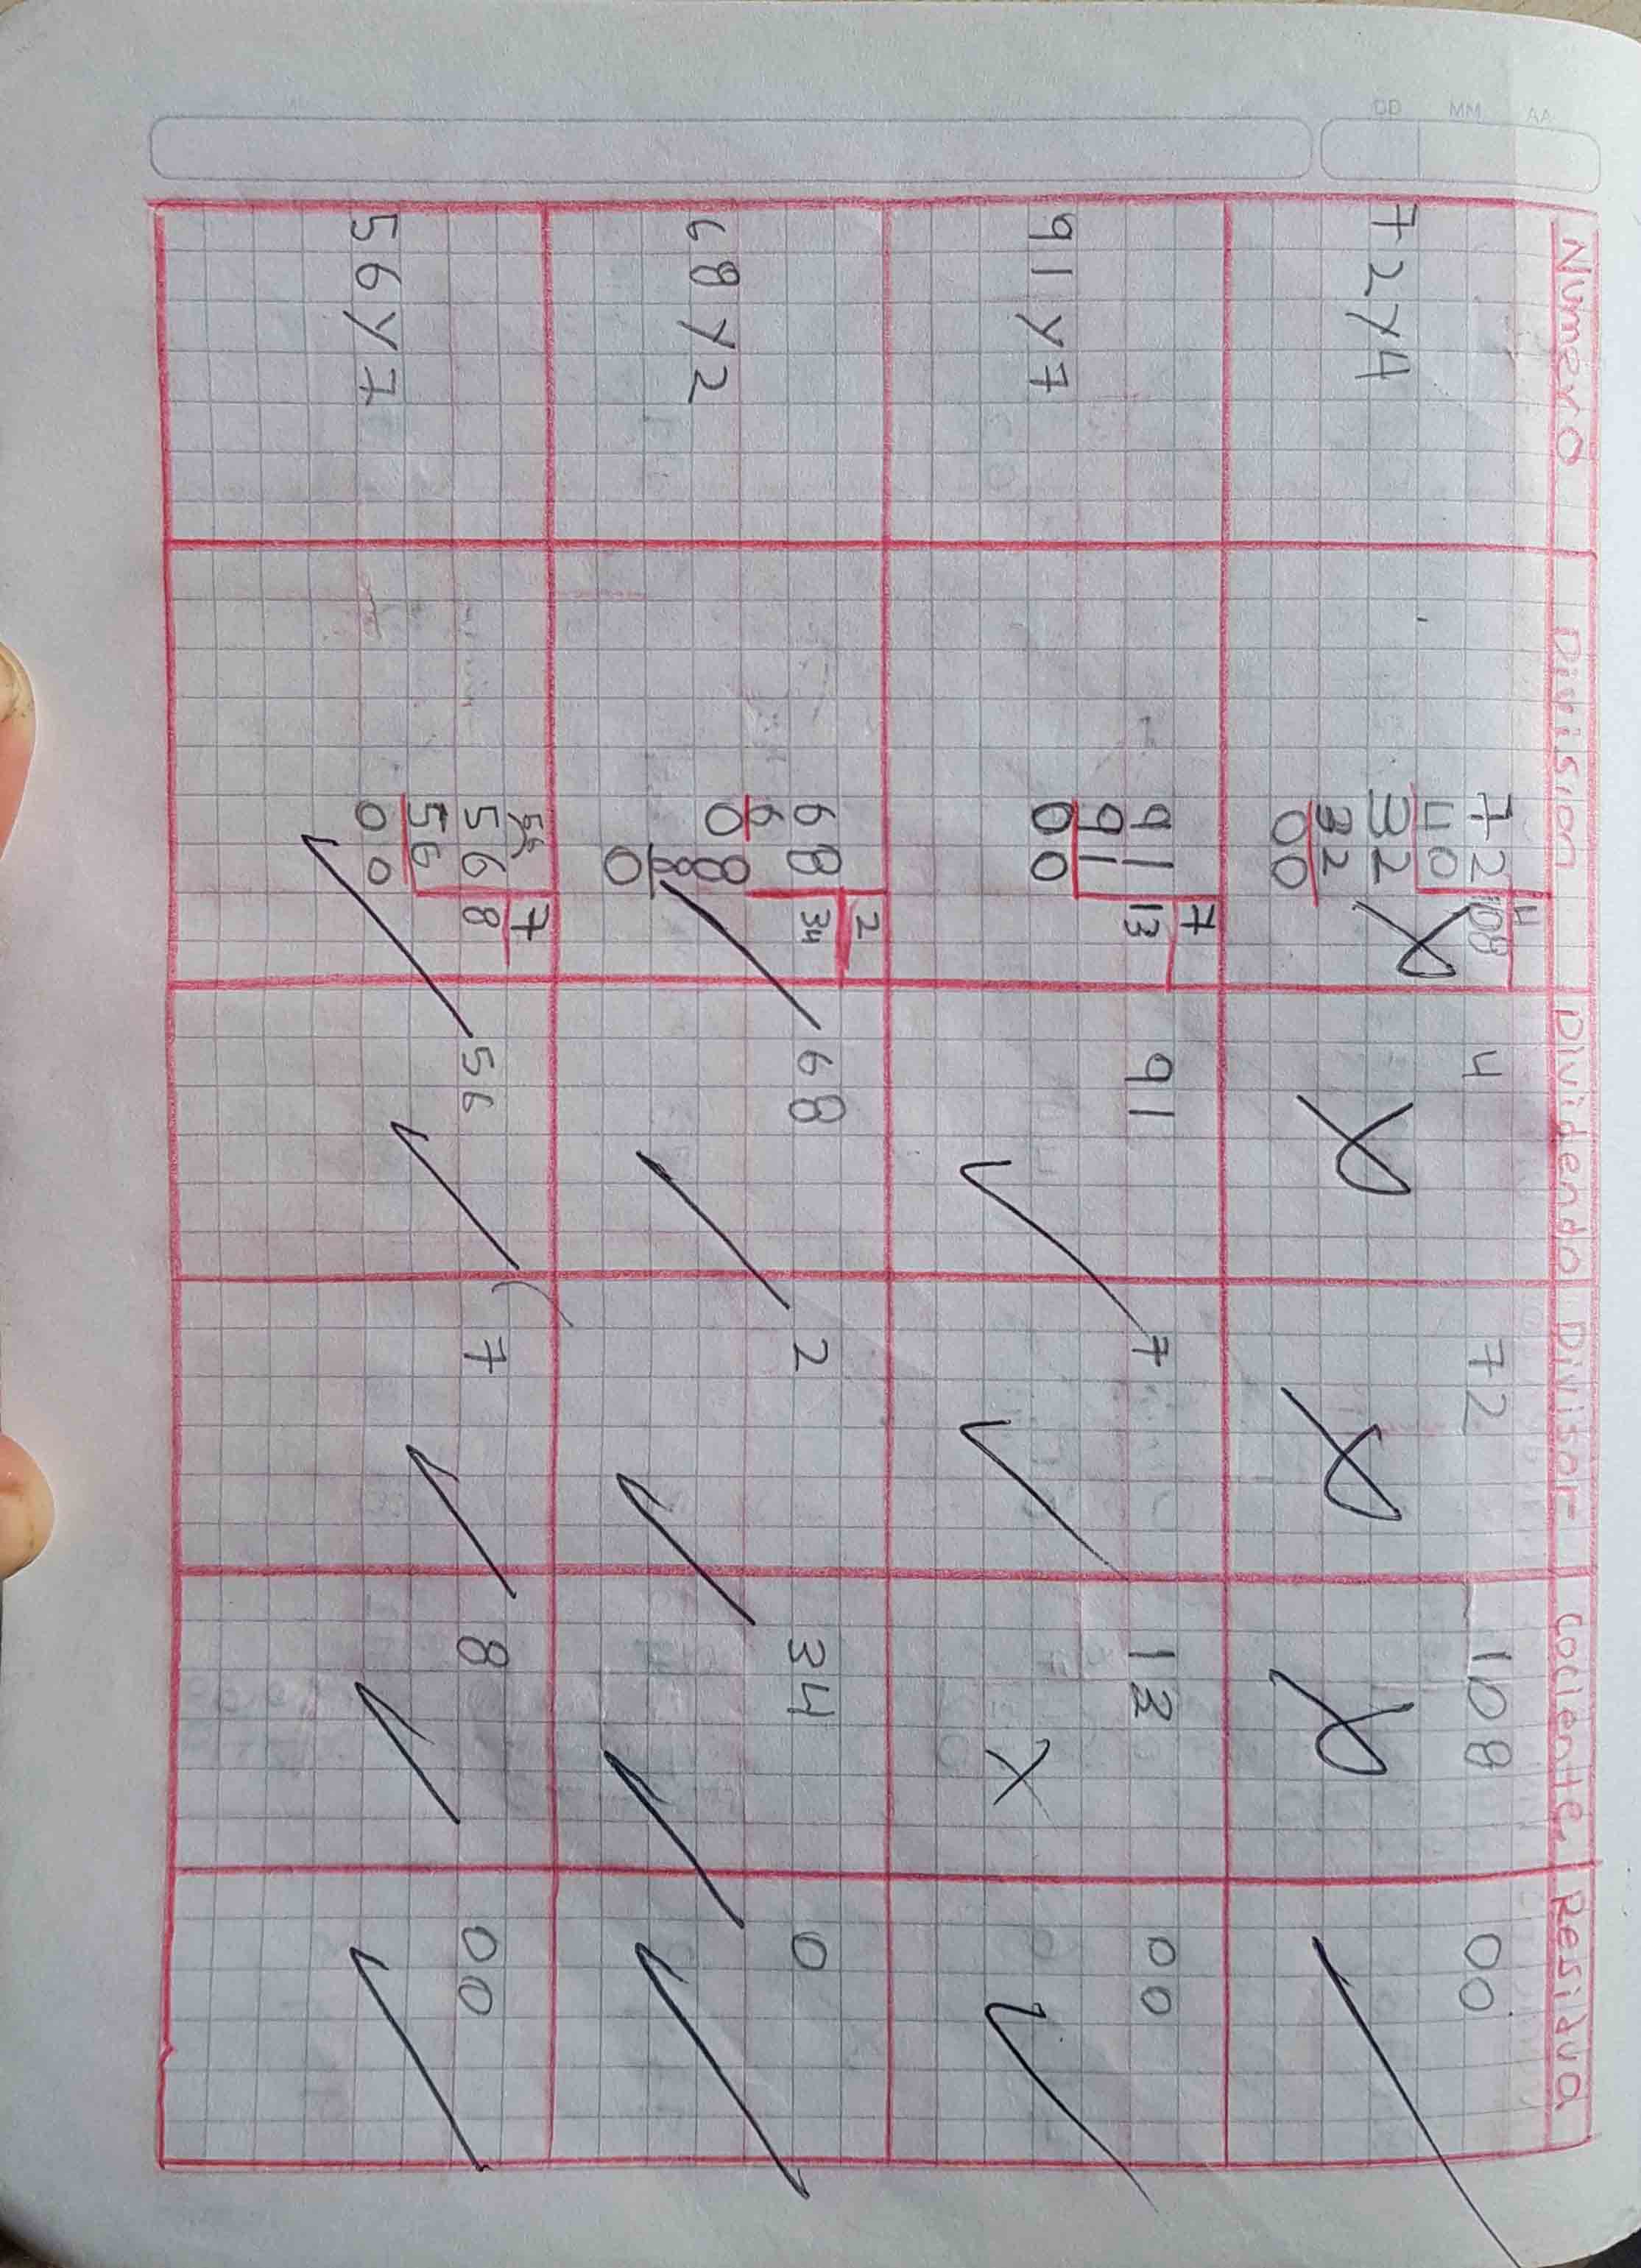 DD MM AA
Numero Division Dividendo Divisor Cociente Residuo
72y4
72 4
40 108
32
32
00
4 72 108 00
91y7
91 7
91 13
00
91 7 00
68y2
68 2
6 34
08
8
0
68 2 34 0
56y7
56 7
56 8
00
56 7 8 00